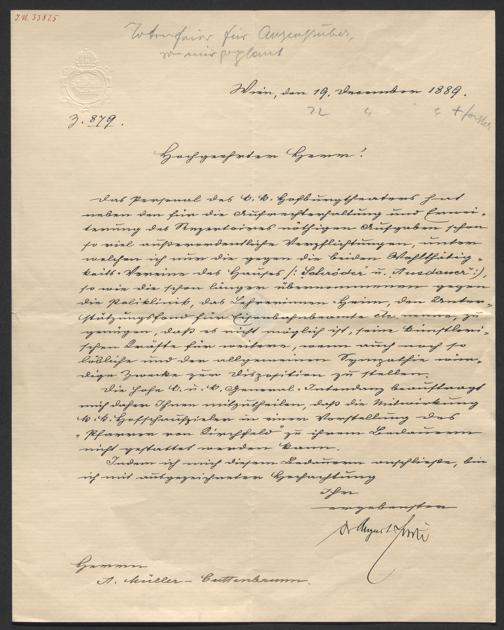 J.N. 33825
Totenfeier für Anzengruber,
von mir geplant
Wien, den 19. December 1889.
22 " "
Z. 879.
Hochgeehrter Herr!
Das Personal des k. k. Hofburgtheaters hat
neben den für die Aufrechterhaltung und Erwei-
terung des Repertoires nöthigen Aufgaben schon
so viel außerordentliche Verpflichtungen, unter
welchen ich nur die gegen die beiden Wohlthätig-
keits-Vereine des Hauses /: Schröder u. :/,
so wie die schon längst übernommenen gegen
die Poliklinik, das Lehrerinnen-Heim, den Unter-
stützungsfond für Eisenbahnbeamte etc. nenne, zu
genügen, daß es nicht möglich ist, seine künstleri-
schen Kräfte für weitere, wenn auch noch so
löbliche und der allgemeinen Sympathie wür-
dige Zwecke zur Disposition zu stellen.
Die hohe k. u. k. General-Intendanz beauftragt
mich daher Ihnen mitzutheilen, daß die Mitwirkung
k. k. Hofschauspieler in einer Vorstellung des
"Pfarrer von Kirchfeld" zu ihrem Bedauern
nicht gestattet werden kann.
Indem ich mich diesem Bedauern anschließe, bin
ich mit ausgezeichneter Hochachtung
Ihr
ergebenster
Dr August Förster
Herrn
A. Müller-Guttenbrunn.